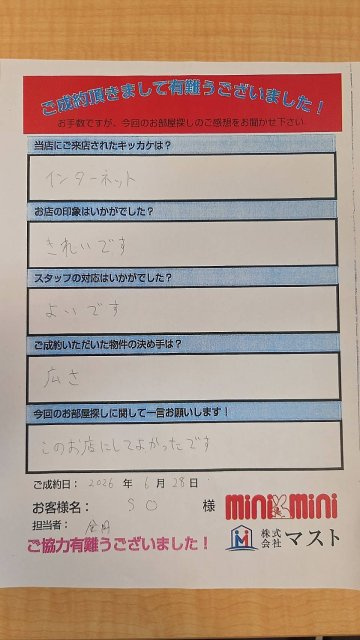 ご成約頂きまして有難うございました！
お手数ですが、今回のお部屋探しのご感想をお聞かせ下さい。
当店にご来店されたキッカケは？
インターネット
お店の印象はいかがでした？
きれいです
スタッフの対応はいかがでした？
よいです
ご成約いただいた物件の決め手は？
広さ
今回のお部屋探しに関して一言お願いします！
このお店にしてよかったです
ご成約日： 2026 年 6 月 28 日
お客様名： S O 様
mini mini
担当者：
株式会社 マスト
ご協力有難うございました！